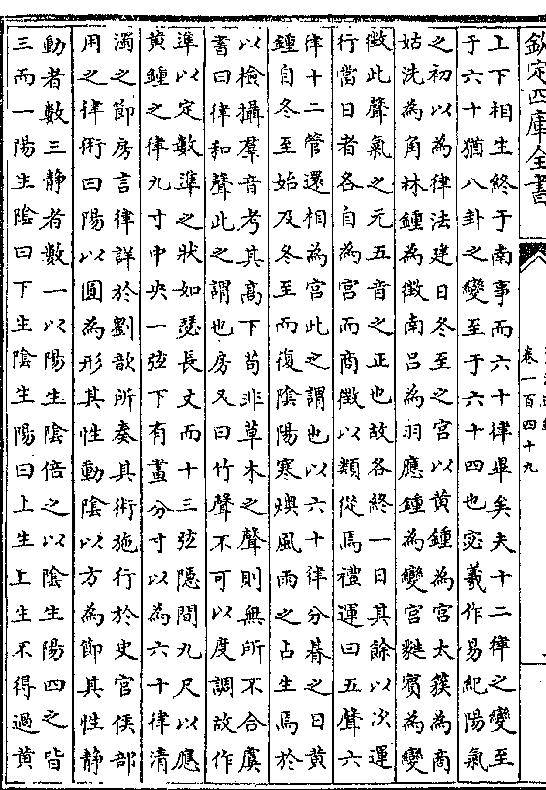 欽定四庫全書
卷一百四十九
上下相生終于南事而六十律畢矣夫十二律之變至
于六十猶八卦之變至于六十四也宓羲作易紀陽氣
之初以為律法建日冬至之宮以黄鍾為宮太簇為商
姑洗為角林鍾為徵南吕為羽應鍾為變宮蕤賓為變
徵此聲氣之元五音之正也故各終一日其餘以次運
行當日者各自為宮而商徵以類從焉禮運曰五聲六
律十二管還相為宮此之謂也以六十律分朞之日黄
鍾自冬至始及冬至而復陰陽寒燠風雨之占生焉於
以檢攝羣音考其高下苟非草木之聲則無所不合虞
書曰律和聲此之謂也房又曰竹聲不可以度調故作
準以定數準之狀如瑟長丈而十三弦隱間九尺以應
黄鍾之律九寸中央一弦下有畫分寸以為六十律清
濁之節房言律詳於劉歆所奏其術施行於史官侯部
用之律術曰陽以圓為形其性動陰以方為節其性靜
動者數三靜者數一以陽生陰倍之以陰生陽四之皆
三而一陽生陰曰下生陰生陽曰上生上生不得過黄